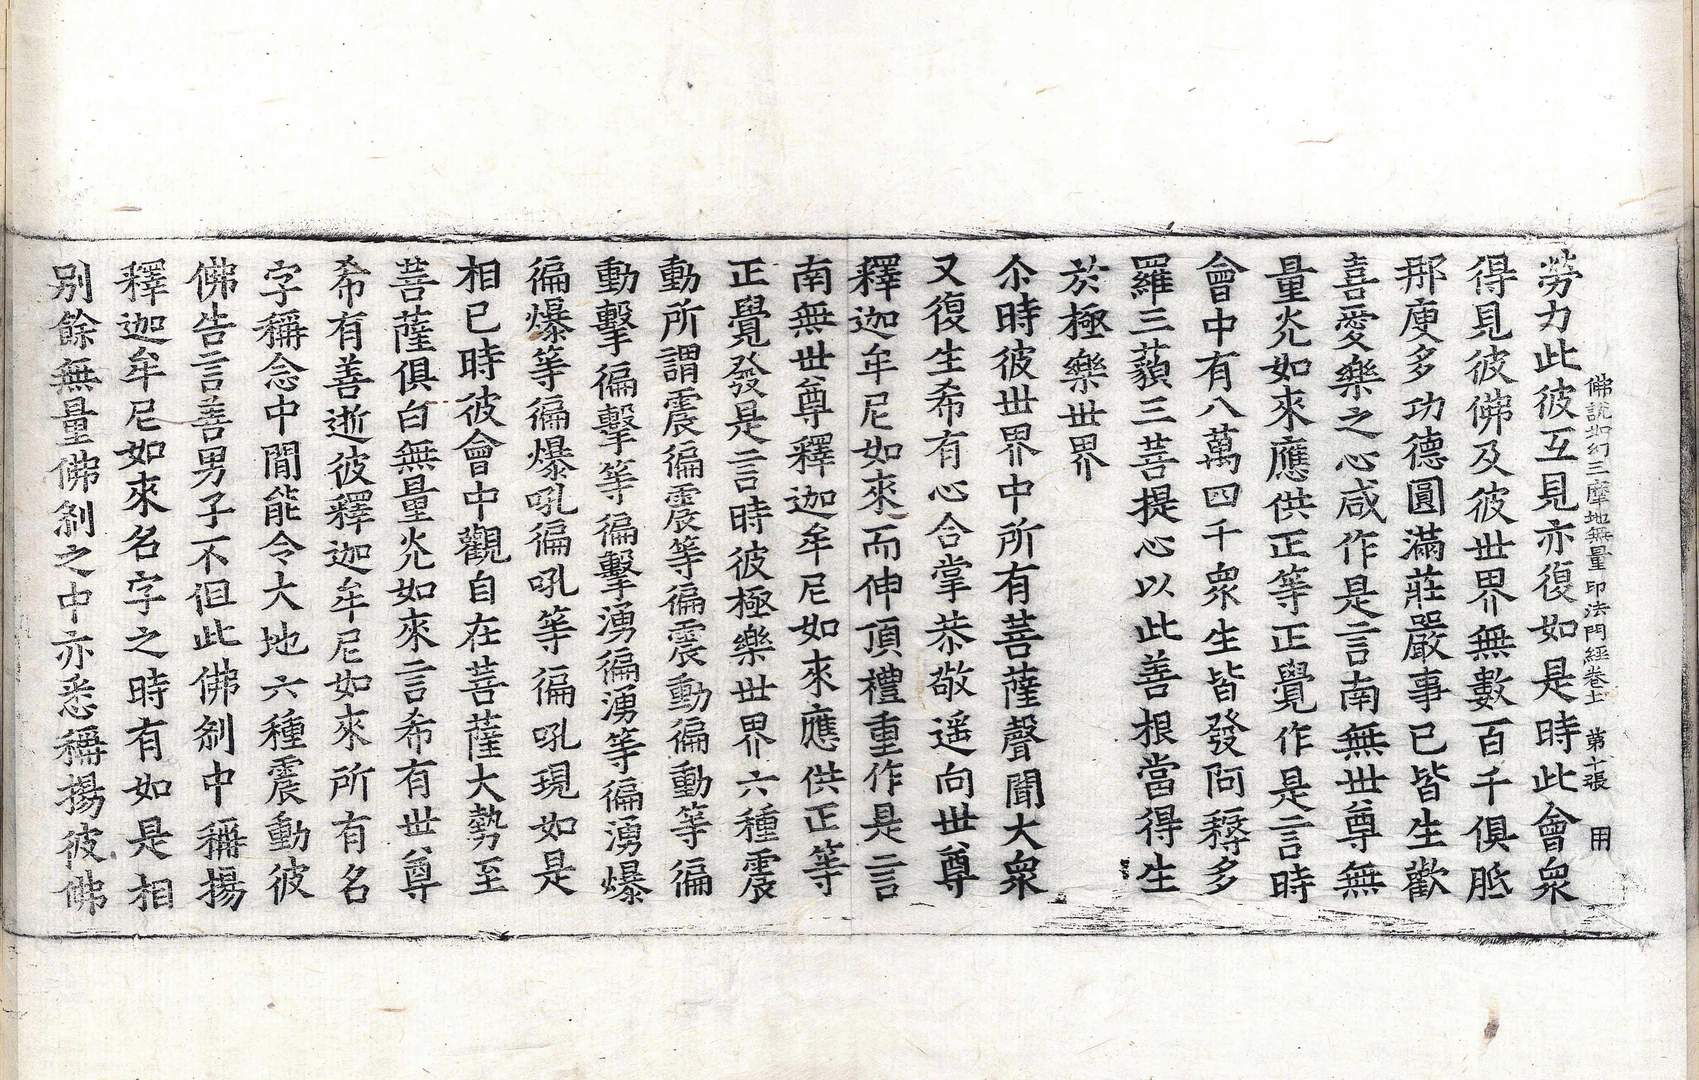 佛說如幻三摩地無量印法門經卷上 第十張 用
勞力此彼互見亦復如是時此會衆
得見彼佛及彼世界無數百千俱胝
那庾多功德圓滿莊嚴事已皆生歡
喜愛樂之心咸作是言南無世尊無
量光如來應供正等正覺作是言時
會中有八萬四千衆生皆發阿耨多
羅三藐三菩提心以此善根當得生
於極樂世界
尒時彼世界中所有菩薩聲聞大衆
又復生希有心合掌恭敬遥向世尊
釋迦牟尼如來而伸頂禮重作是言
南無世尊釋迦牟尼如來應供正等
正覺發是言時彼極樂世界六種震
動所謂震徧震等徧震動徧動等徧
動擊徧擊等徧擊湧徧湧等徧湧爆
徧爆等徧爆吼徧吼等徧吼現如是
相已時彼會中觀自在菩薩大勢至
菩薩俱白無量光如來言希有世尊
希有善逝彼釋迦牟尼如來所有名
字稱念中間能令大地六種震動彼
佛告言善男子不但此佛刹中稱揚
釋迦牟尼如來名字之時有如是相
别餘無量佛刹之中亦悉稱揚彼佛